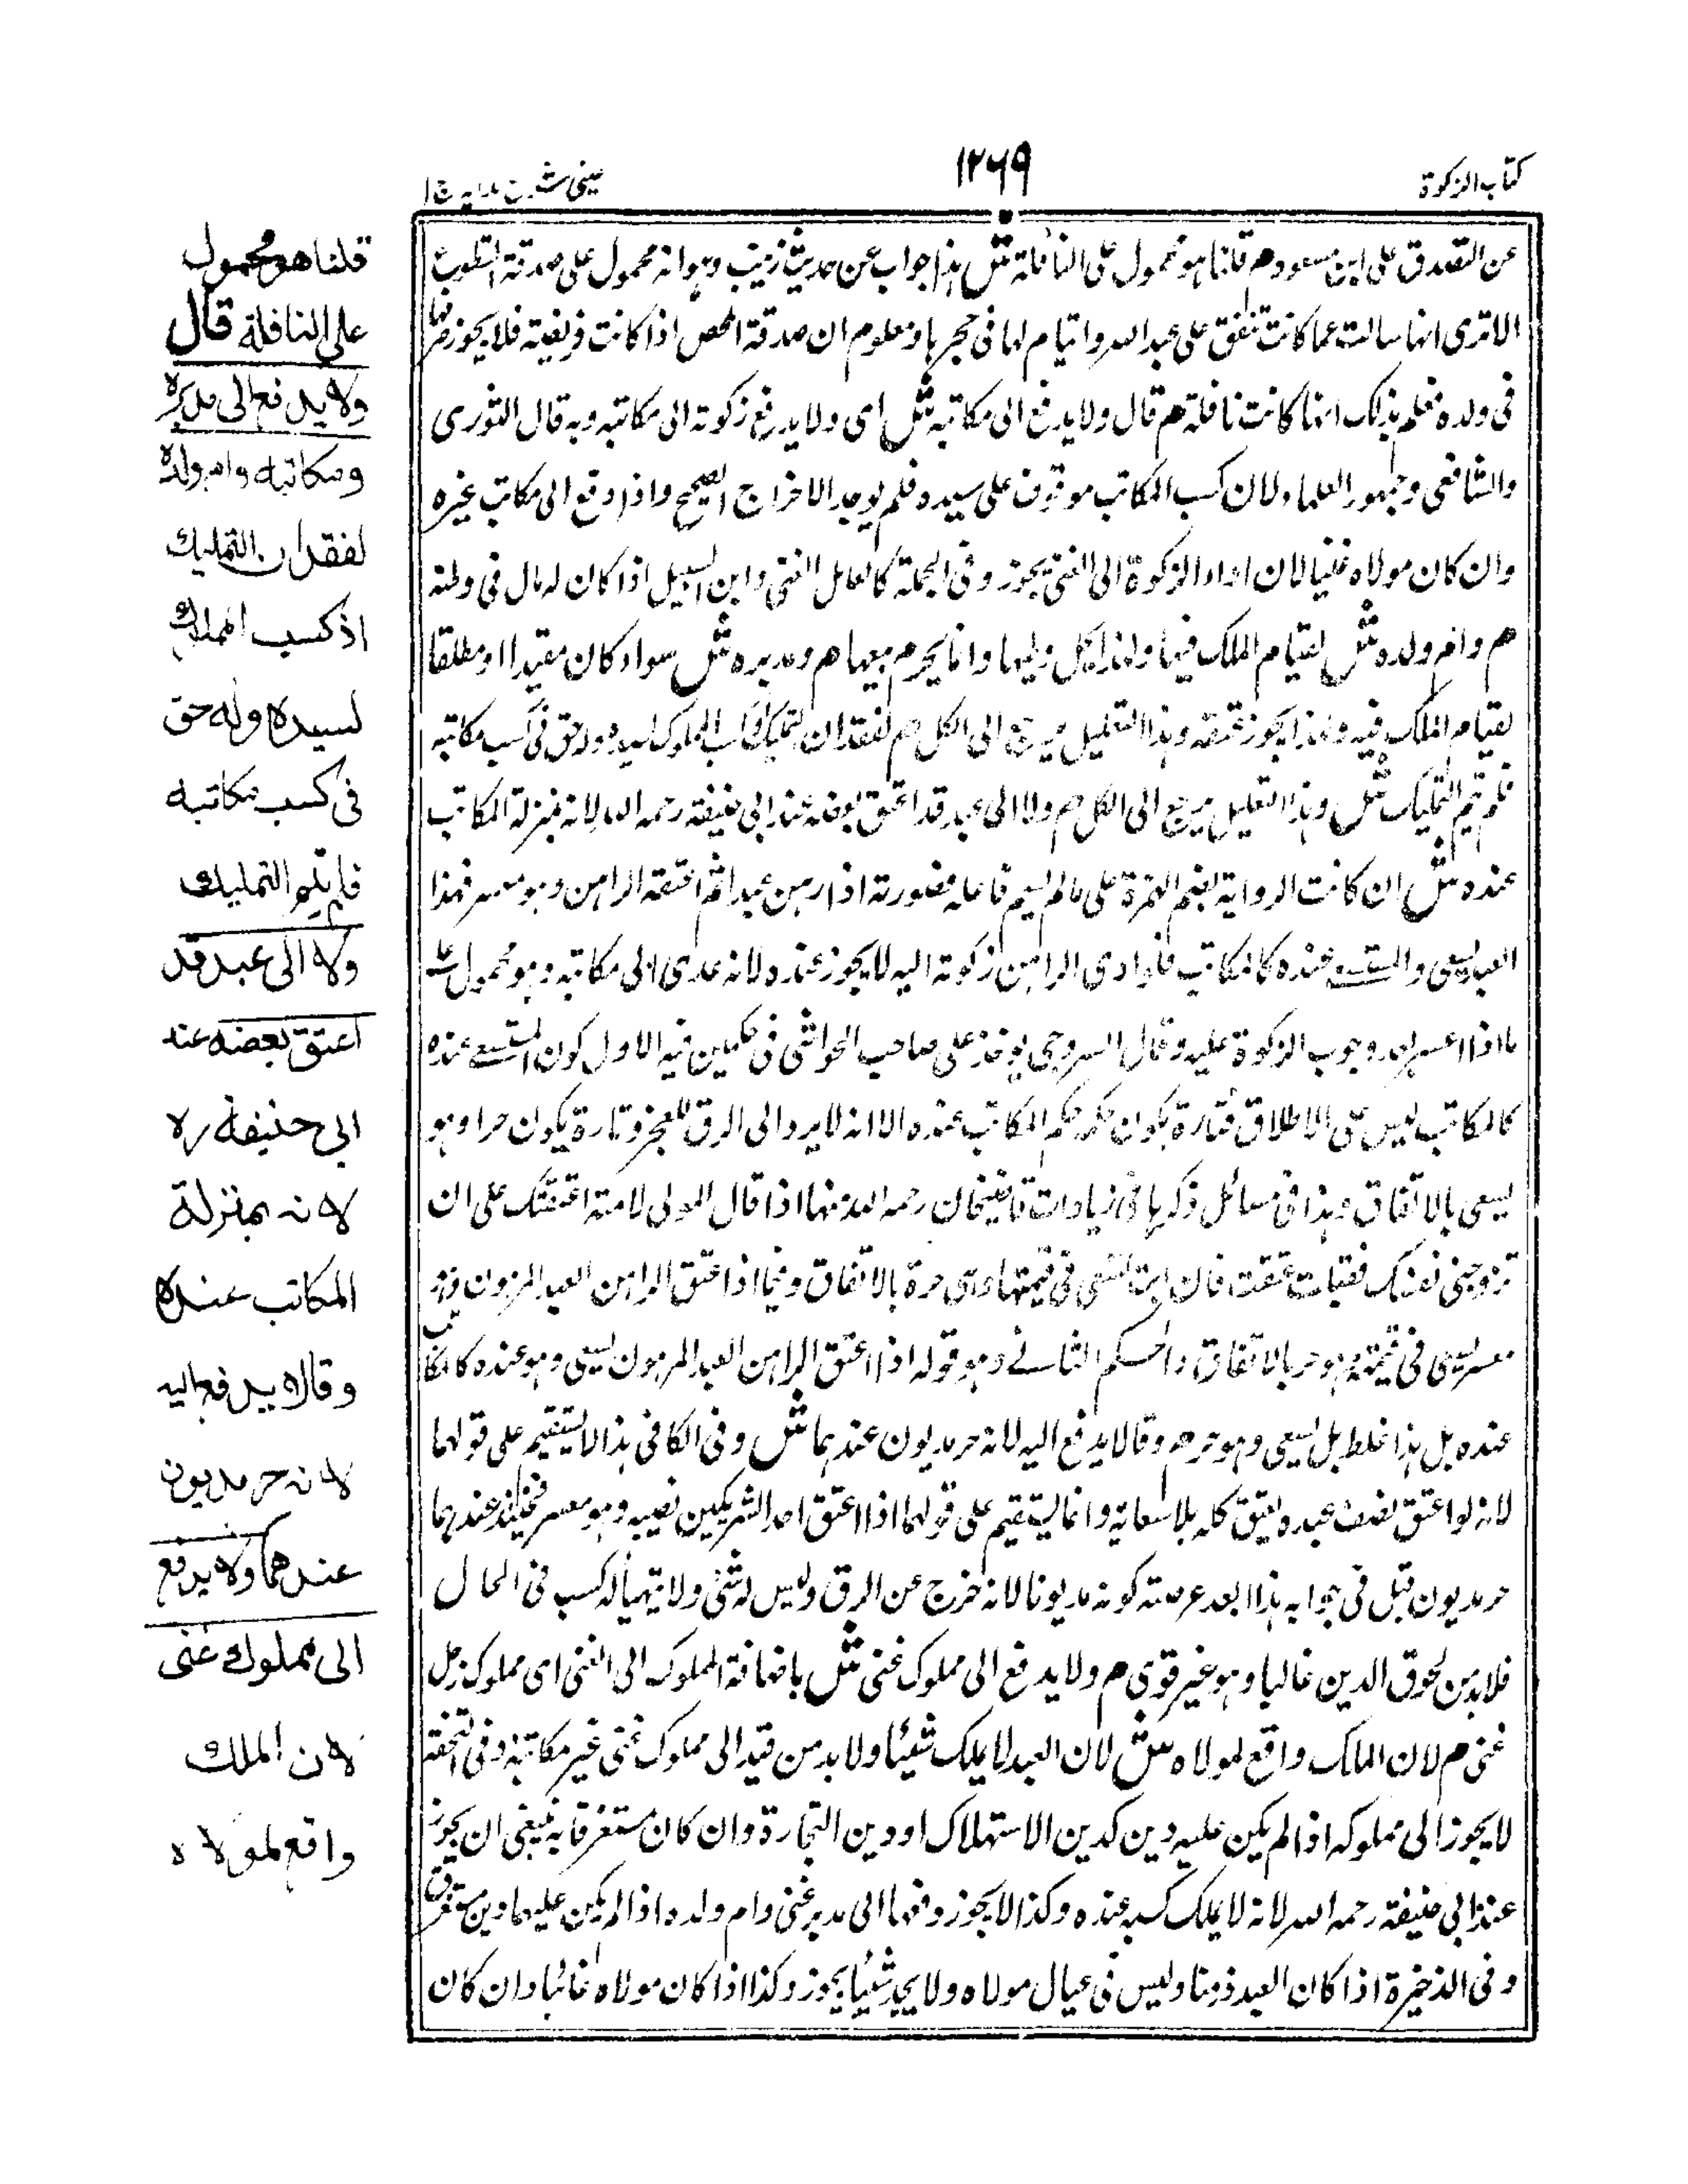 كتاب الزكوة
١٢٦٩
عينى شرح هدايه ج ا
عن التصدق على ابن مسعود م قلنا هو محمول على النافلة ش هذا جواب عن حديث زينب وهو انه محمول على صدقة التطوع
الا ترى انها سالت عما كانت تنفق على عبد الله وايتام لها فى حجرها ومعلوم ان صدقة المحص اذا كانت فريضة فلا يجوز صرفها
فى ولده فعلم بذلك انها كانت نافلة م قال ولا يدفع الى مكاتبه ش اى ولا يدفع زكوته الى مكاتبه وبه قال الثورى
والشافعى وجمهور العلماء لان كسب المكاتب موقوف على سيده فلم يوجد الاخراج الصحيح واذا دفع الى مكاتب غيره
وان كان مولاه غنيا لان اداء الزكوة الى الغنى يجوز وفى الجملة كالعامل الغنى وابن السبيل اذا كان له مال فى وطنه
م وام ولده ش لقيام الملك فيها ولهذا يحل وطيها وانما يحرم بيعها م ومدبره ش سواء كان مقيدا او مطلقا
لقيام الملك فيه ولهذا يجوز عتقه وهذا التعليل يرجع الى الكل م لفقدان التمليك اذ كسب المملوك لسيده وله حق فى كسب مكاتبه
فلم يتم التمليك ش وهذا التعليل يرجع الى الكل م ولا الى عبد قد اعتق بعضه عند ابى حنيفة رحمه الله لانه بمنزلة المكاتب
عنده ش ان كانت الرواية بضم الهمزة على ما لم يسم فاعله فصورته اذا رهن عبدا ثم اعتقه الراهن وهو معسر فهذا
العبد يسعى والمستسعى عنده كالمكاتب فلو ادى الراهن زكوته اليه لا يجوز عنده لانه ادى الى مكاتبه وهو محمول على
ما اذا اعسر بعد وجوب الزكوة عليه وقال السروجى يوخذ على صاحب الحواشى فى حكمين فيه الاول كون المستسعى عنده
كالمكاتب ليس على الاطلاق فتارة يكون حكمه حكم المكاتب عنده الا انه لا يرد الى الرق للعجز وتارة يكون حرا وهو
يسعى بالاتفاق وهذا فى مسائل ذكرها فى زيادات قاضيخان رحمه الله منها اذا قال المولى لامته اعتقتك على ان
تزوجنى نفسك فقبلت عتقت فان ابت تسعى فى قيمتها وهى حرة بالاتفاق وفيما اذا اعتق الراهن العبد المرهون وهو
معسر يسعى فى قيمته وهو حر بالاتفاق والحكم الثانى وهو قوله اذا اعتق الراهن العبد المرهون يسعى وهو عنده كالمكاتب
عنده بل هذا غلط بل يسعى وهو حر م وقالا يدفع اليه لانه حر مديون عندهما ش وفى الكافى هذا لا يستقيم على قولهما
لانه لو اعتق نصف عبده يعتق كله بلا سعاية وانما يستقيم على قولهما اذا اعتق احد الشريكين نصيبه وهو معسر فحينئذ عندهما
حر مديون قبل فى جوابه هذا بعد عرضته كونه مديونا لانه خرج عن الرق وليس له شئ ولا يتهيأ له كسب فى الحال
فلا بد من لحوق الدين غالبا وهو غير قوى م ولا يدفع الى مملوك غنى ش باضافة المملوك الى الغنى اى مملوك رجل
غنى م لان الملك واقع لمولاه ش لان العبد لا يملك شيئا ولا بد من قيد الى مملوك غنى غير مكاتبه وفى التحفة
لا يجوز الى مملوكه اذا لم يكن عليه دين كدين الاستهلاك او دين التجارة وان كان مستغرقا به ينبغى ان يجوز
عند ابى حنيفة رحمه الله لانه لا يملك كسبه عنده وكذا لا يجوز دفعها الى مدبر غنى وام ولده اذا لم يكن عليهما دين مستغرق
وفى الذخيرة اذا كان العبد زمنا وليس فى عيال مولاه ولا يجد شيئا يجوز وكذا اذا كان مولاه غائبا وان كان
قلنا هو محمول
على النافلة قال
ولا يدفع الى مدبره
ومكاتبه وام ولده
لفقدان التمليك
اذ كسب المملوك
لسيده وله حق
فى كسب مكاتبه
فلم يتم التمليك
ولا الى عبد قد
اعتق بعضه عند
ابى حنيفة ره
لانه بمنزلة
المكاتب عنده
وقالا يدفع اليه
لانه حر مديون
عندهما ولا يدفع
الى مملوك غنى
لان الملك
واقع لمولاه